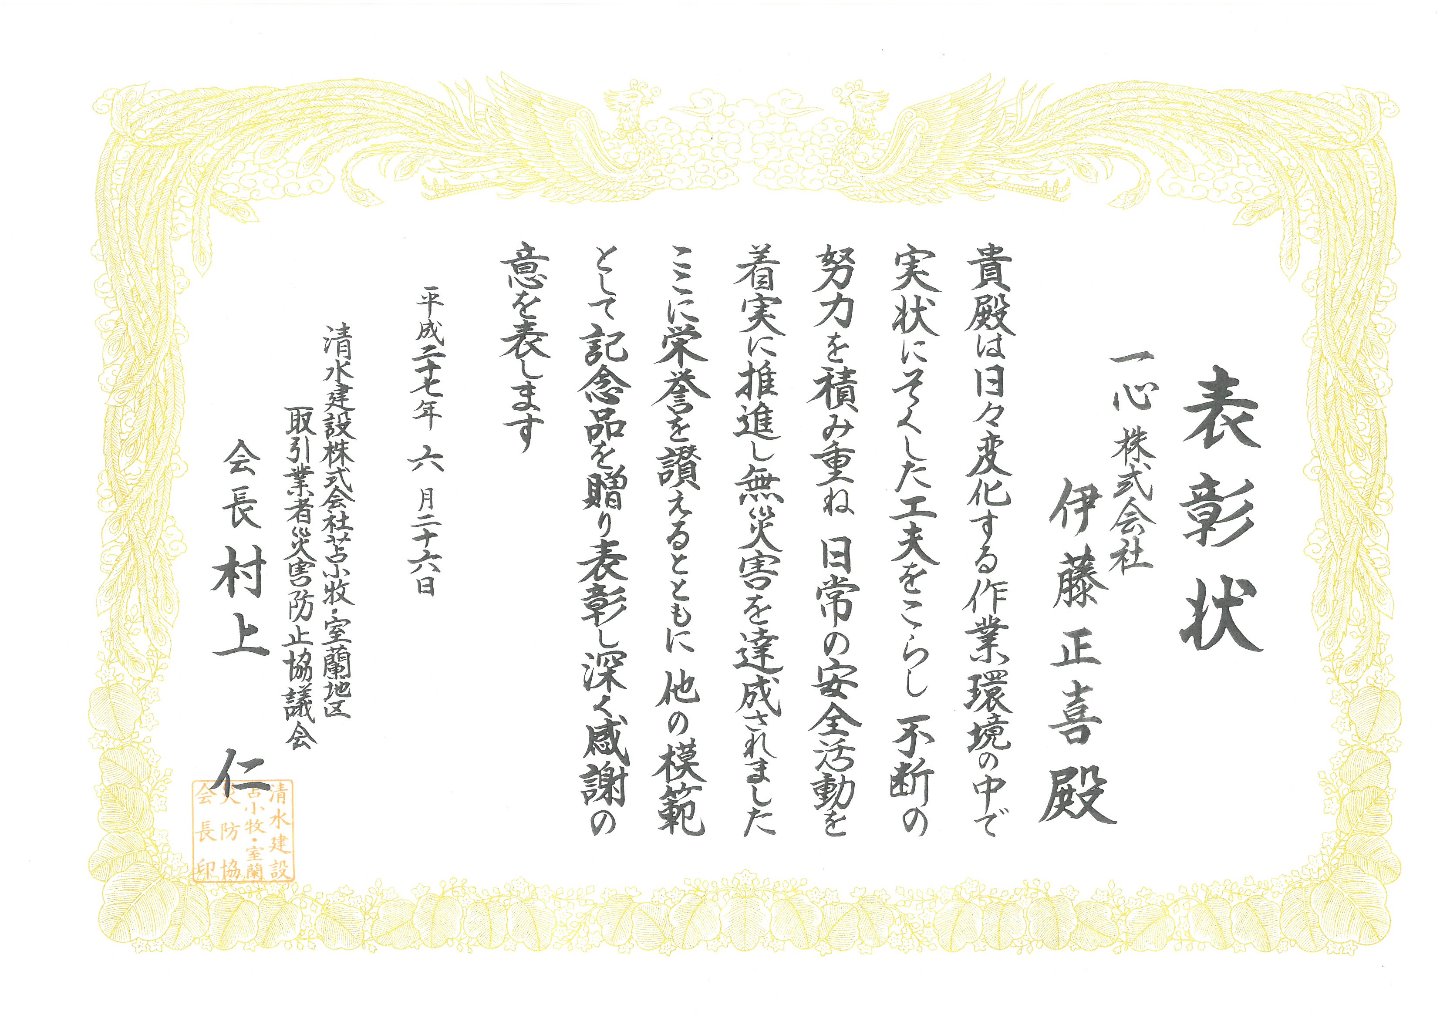 表彰状
一心株式会社
伊藤正喜殿
貴殿は日々変化する作業環境の中で
実状にそくした工夫をこらし不断の
努力を積み重ね日常の安全活動を
着実に推進し無災害を達成されました
ここに栄誉を讃えるとともに他の模範
として記念品を贈り表彰し深く感謝の
意を表します
平成二十七年六月二十六日
清水建設株式会社苫小牧・室蘭地区
取引業者災害防止協議会
会長村上仁
清水建設
苫小牧・室蘭
災防協
会長印